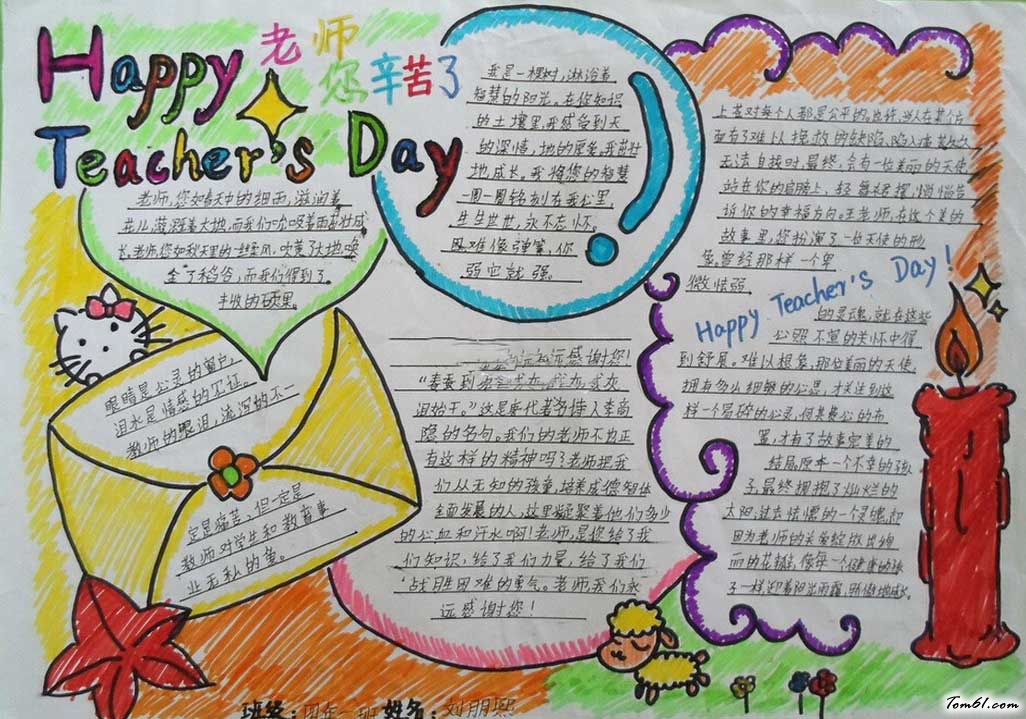 Happy 老师
您辛苦了
Teacher's Day
老师,您如春天中的细雨,滋润着
花儿,滋润着大地,而我们吮吸着雨露茁壮成
长,老师,您如秋天里的一丝丝风,吹黄了大地,唤
金了稻谷,而我们得到了
丰收的硕果。
我是一棵树,淋浴着
智慧的阳光。在你知识
的土壤里,我感受到天
的深情,地的厚爱,我茁壮
地成长。我将您的智慧
一圈一圈铭刻在我心里,
生生世世,永不忘怀。
困难像弹簧,你
弱它就强。
眼睛是心灵的窗户,
泪水是情感的
教师的眼泪,流泻的不一
定是痛苦,但一定是
教师对学生和教育事
业无私的美。
远感谢您!
泪始干。"这是唐代著名诗人李商
隐的名句。我们的老师不也正
有这样的精神吗?老师把我
们从无知的孩童,培养成德智体
全面发展的人,这里凝聚着他们多少
的心血和汗水啊!老师,是您给了我
们知识,给了我们力量,给了我们
战胜困难的勇气。老师我们永
远感谢您!
上苍对每个人都是公平的。也许,当人在某个方
面有了难以挽救的缺陷,陷入痛苦
无法自拔时,最终,会有一位美丽的天使
站在你的肩膀上,轻舞 悄悄告
诉你的幸福方向。王老师,在这个美的
故事里,您扮演了一位天使的形
象。曾经那样一个卑
微怯弱
Happy Teacher's Day!
的灵魂,就在这些
心照不宣的关怀中得
到舒展。难以想象,那位美丽的天使,
拥有多么细腻的心思,才关注到这
样一个易碎的心灵,何其费心的布
置,才有了故事完美的
结局,原本一个不幸的孩
子,最终拥抱了灿烂的
太阳,过去怯懦的一个灵魂,却
因为老师的关爱绽放出绚
丽的花朵,像每一个健康的孩
子一样,迎着阳光雨露,骄傲地成长。
班级:四年一班 姓名:刘朋熙
Tom61.com